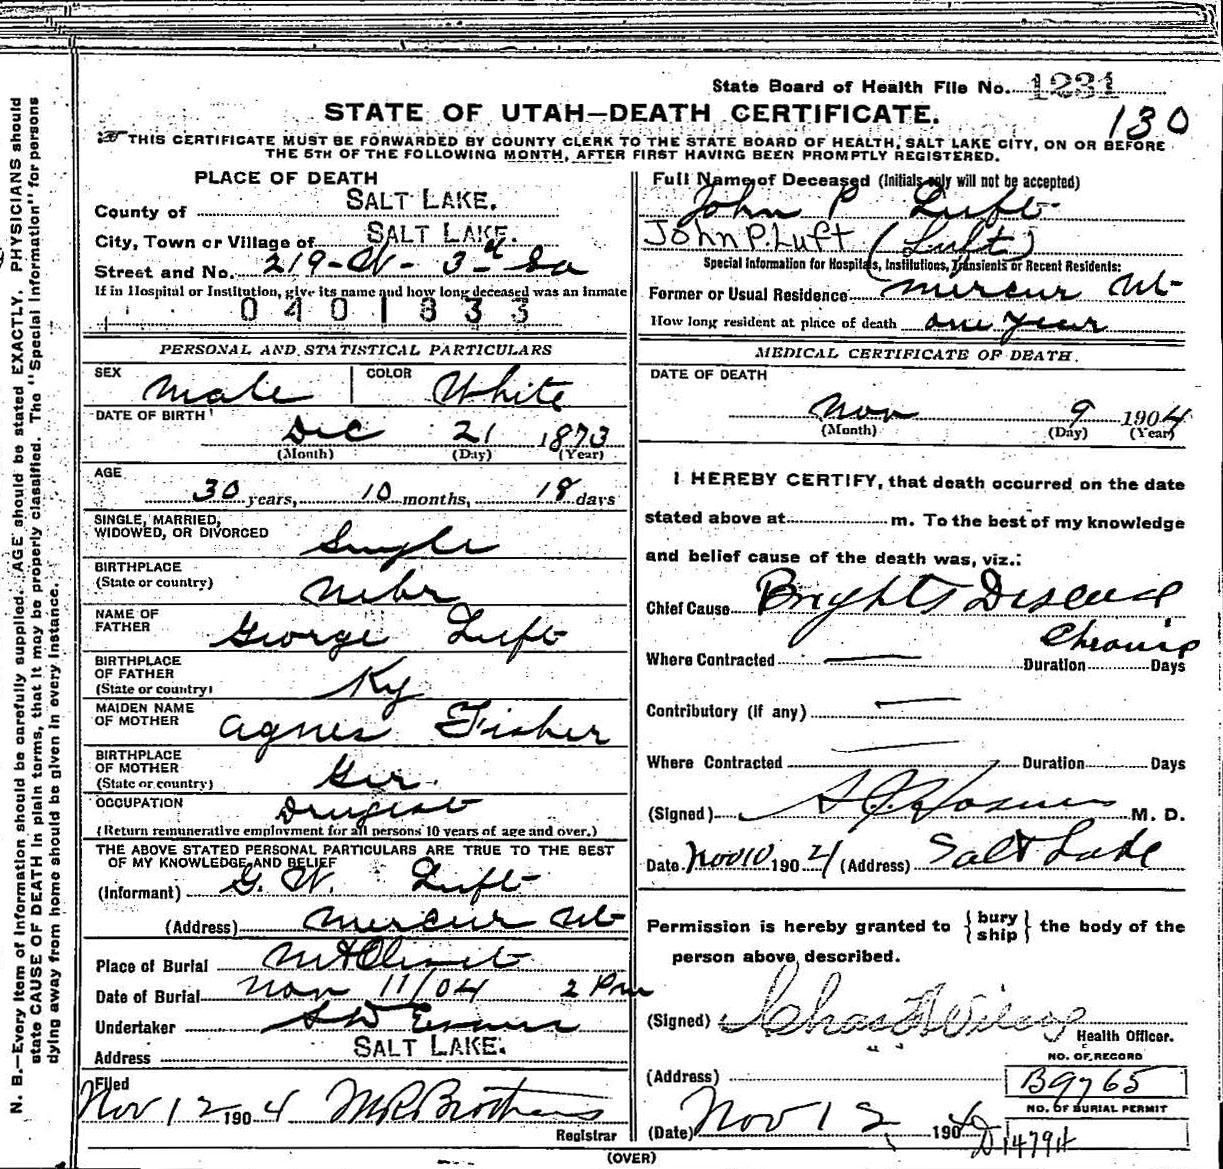 State Board of Health File No. 1231
STATE OF UTAH—DEATH CERTIFICATE.
130
THIS CERTIFICATE MUST BE FORWARDED BY COUNTY CLERK TO THE STATE BOARD OF HEALTH, SALT LAKE CITY, ON OR BEFORE
THE 5TH OF THE FOLLOWING MONTH, AFTER FIRST HAVING BEEN PROMPTLY REGISTERED.
N. B.—Every item of information should be carefully supplied. AGE should be stated EXACTLY. PHYSICIANS should
state CAUSE OF DEATH in plain terms, that it may be properly classified. The "Special Information" for persons
dying away from home should be given in every instance.
PLACE OF DEATH
County of SALT LAKE.
City, Town or Village of SALT LAKE.
Street and No. 219-W-3rd So
If in Hospital or Institution, give its name and how long deceased was an inmate
0401833
PERSONAL AND STATISTICAL PARTICULARS
SEX Male COLOR White
DATE OF BIRTH
Dec 21 1873
(Month) (Day) (Year)
AGE
30 years, 10 months, 18 days
SINGLE, MARRIED,
WIDOWED, OR DIVORCED Single
BIRTHPLACE
(State or country) Nebr
NAME OF
FATHER George Luft
BIRTHPLACE
OF FATHER
(State or country) Ky
MAIDEN NAME
OF MOTHER Agnes Fisher
BIRTHPLACE
OF MOTHER
(State or country) Ger.
OCCUPATION Drugist
(Return remunerative employment for all persons 10 years of age and over.)
THE ABOVE STATED PERSONAL PARTICULARS ARE TRUE TO THE BEST
OF MY KNOWLEDGE AND BELIEF
(Informant) G. W. Luft
(Address) Mercur Ut
Place of Burial Mt Olivet
Date of Burial Nov 11/04 2 Pm
Undertaker S D Evans
Address SALT LAKE.
Filed
Nov 12 1904 M R Brothers
Registrar
Full Name of Deceased (Initials only will not be accepted)
John P Luft
John P. Luft (Luft)
Special Information for Hospitals, Institutions, Transients or Recent Residents:
Former or Usual Residence Mercur Ut
How long resident at place of death one year
MEDICAL CERTIFICATE OF DEATH.
DATE OF DEATH
Nov 9 1904
(Month) (Day) (Year)
I HEREBY CERTIFY, that death occurred on the date
stated above at m. To the best of my knowledge
and belief cause of the death was, viz.:
Chief Cause Brights Disease
Chronic
Where Contracted — Duration Days
Contributory (if any) —
Where Contracted — Duration Days
(Signed) M. D.
Date Nov 10 1904 (Address) Salt Lake
Permission is hereby granted to { bury ship } the body of the
person above described.
(Signed) Chas
Health Officer.
(Address)
NO. OF RECORD
B9765
NO. OF BURIAL PERMIT
D14794
(Date) Nov 12 1904
(OVER)